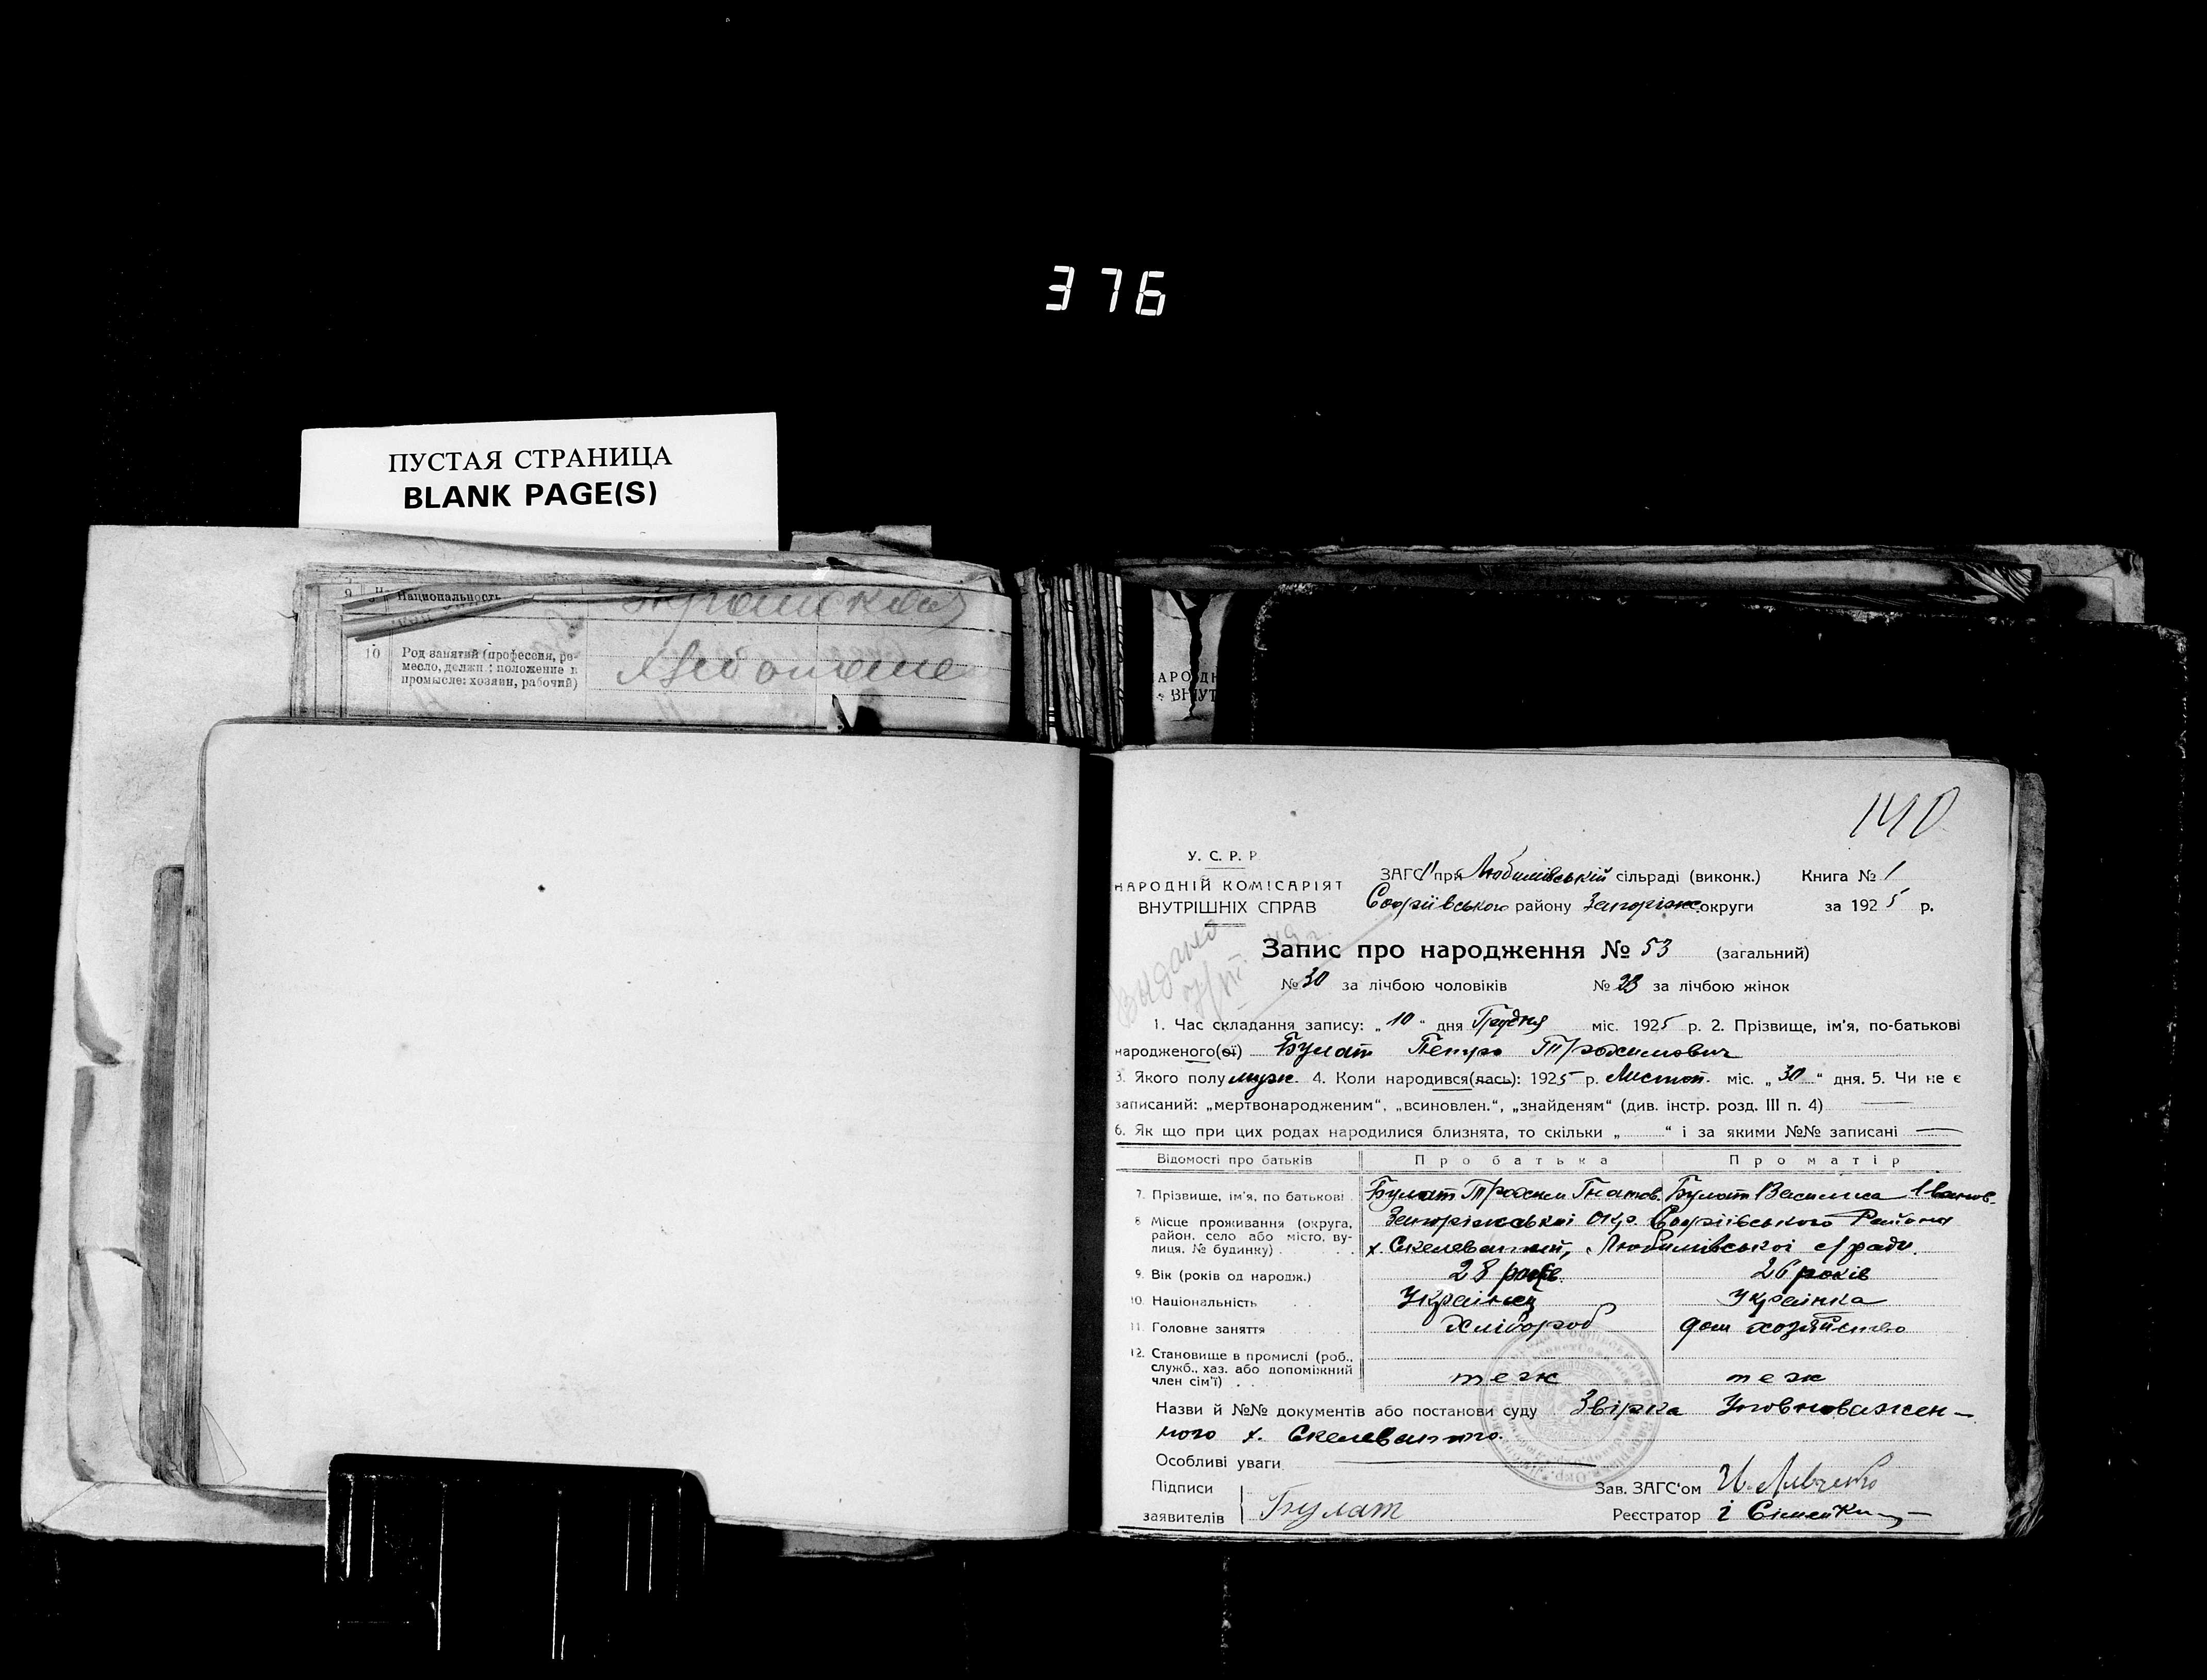 376
ПУСТАЯ СТРАНИЦА
BLANK PAGE(S)
9 Национальность
10 Род занятий (профессия, ре-
месло, должн : положение в
промысле: хозяин, рабочий)
АРОДН
ВНУТ
140
У. С. Р. Р
НАРОДНІЙ КОМІСАРІЯТ
ВНУТРІШНІХ СПРАВ
ЗАГС при Любимівській сільраді (виконк.) Книга № 1
Софіївського району Запоріж округи за 1925 р.
Видано
Запис про народження № 53 (загальний)
№ 30 за лічбою чоловіків № 23 за лічбою жінок
1. Час складання запису: „10“ дня Грудня міс. 1925 р. 2. Прізвище, ім'я, по-батькові
народженого(ої) Булат Петро Трохимович
3. Якого полу муж. 4. Коли народився(лась): 1925 р. Листоп. міс. „30“ дня. 5. Чи не є
записаний: „мертвонародженим“, „всиновлен.“, „знайденям“ (див. інстр. розд. III п. 4)
6. Як що при цих родах народилися близнята, то скільки „ “ і за якими №№ записані
Відомості про батьків Про батька Про матір
7. Прізвище, ім'я, по батькові Булат Трохим Гнатов. Булат Василиса Іванов.
8 Місце проживання (округа, район. село або місто, вулиця, № будинку) Запоріжської Окр. Софіївського Району
х. Скелеватий, Любимівської с/ради.
9. Вік (років од народж.) 28 років. 26 років
10. Національність Українец Українка
11. Головне заняття Хлібороб дом хозяйство
12. Становище в промислі (роб., служб., хаз. або допоміжний член сім'ї) теж теж
Назви й №№ документів або постанови суду Звірка Уповноважен-
ного х. Скелеватого.
Особливі уваги
Підписи
заявителів Булат
Зав. ЗАГС'ом
Реєстратор